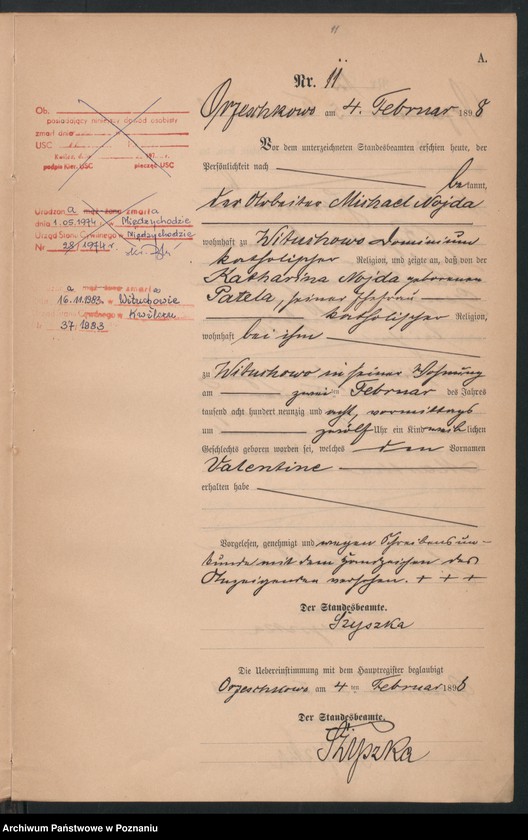 11
A.
Nr. 11
Orzeschkowo am 4. Februar 1898
Vor dem unterzeichneten Standesbeamten erschien heute, der
Persönlichkeit nach
bekannt,
der Arbeiter Michael Nojda
wohnhaft zu Wituchowo Dominium
katholischer Religion, und zeigte an, daß von der
Katharina Nojda geborenen
Patela, seiner Ehefrau
katholischer Religion,
wohnhaft bei ihm
zu Wituchowo in seiner Wohnung
am zwei ten Februar des Jahres
tausend acht hundert neunzig und acht, vormittags
um zwölf Uhr ein Kind weiblichen
Geschlechts geboren worden sei, welches den Vornamen
Valentine
erhalten habe
Vorgelesen, genehmigt und wegen Schreibensun-
kunde mit dem Handzeichen des
Anzeigenden versehen. + + +
Der Standesbeamte.
Szyszka
Die Uebereinstimmung mit dem Hauptregister beglaubigt
Orzeschkowo am 4 ten Februar 1898
Der Standesbeamte.
Szyszka
Ob.
posiadający
dowód osobisty
zmarł dnia
USC
podpis Kier. USC pieczęć USC
a mąż-żona zmarła
dnia 1.05.1974 r. w Międzychodzie
Urząd Stanu Cywilnego w Międzychodzie
Nr 28/1974 r.
a mąż-żona zmarła
16.11.1983 w Wituchowie
w Kwilczu
37.1983
Archiwum Państwowe w Poznaniu